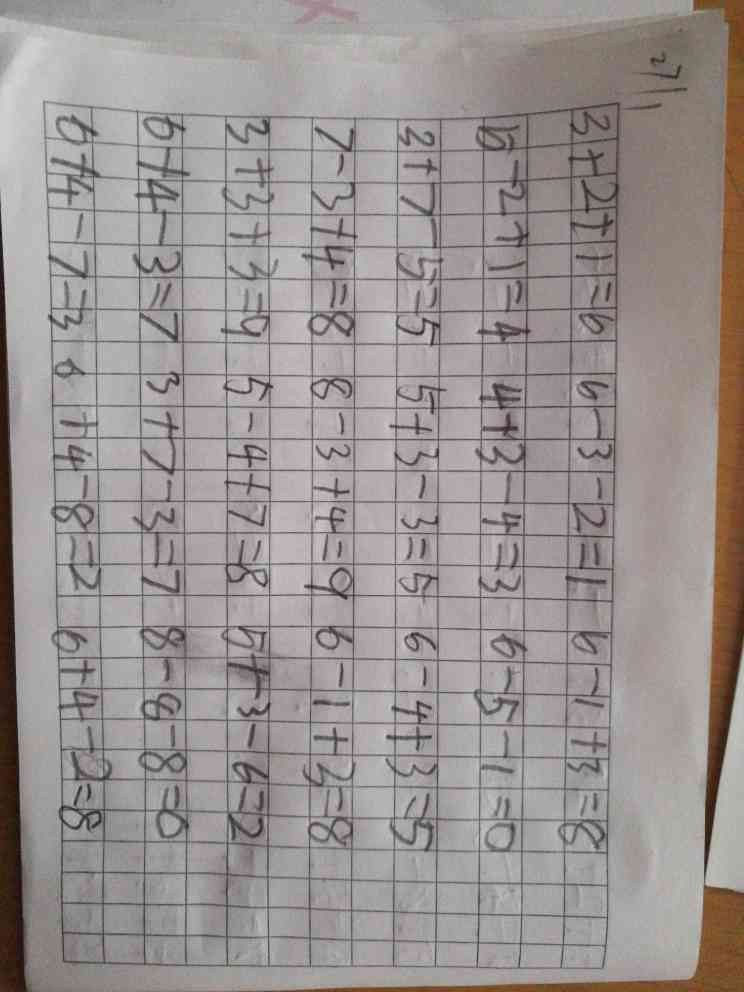 3+2+1=6 6-3-2=1 6-1+3=8
5-2+1=4 4+3-4=3 6-5-1=0
3+7-5=5 5+3-3=5 6-4+3=5
7-3+4=8 8-3+4=9 6-1+3=8
3+3+3=9 5-4+7=8 5+3-6=2
6+4-3=7 3+7-3=7 8-8-8=0
6+4-7=3 6+4-8=2 6+4-2=8